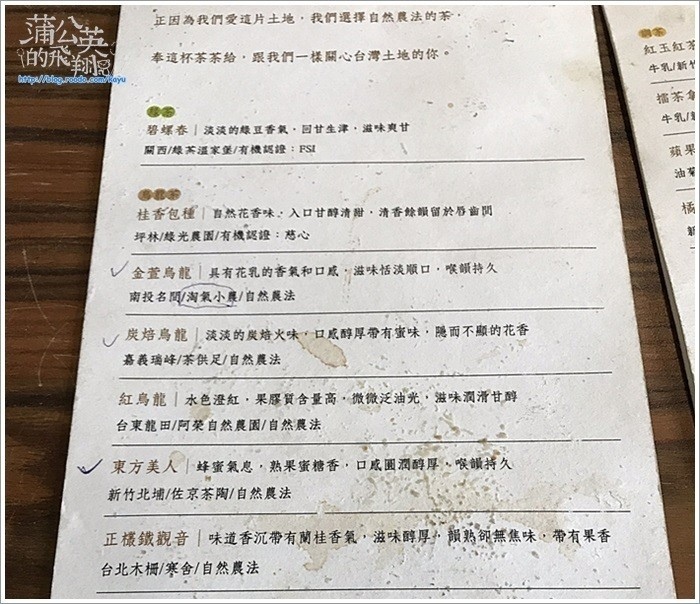 蒲公英的飛翔
http://blog.roodo.com/kayu
正因為我們愛這片土地，我們選擇自然農法的茶.
奉這杯茶茶給，跟我們一樣關心台灣土地的你。
綠茶
碧螺春｜淡淡的綠豆香氣，回甘生津，滋味爽甘
關西/綠茶溫家堡/有機認證：FSI
烏龍茶
桂香包種｜自然花香味、入口甘醇清甜，清香餘韻留於唇齒間
坪林/綠光農園/有機認證：慈心
金萱烏龍｜具有花乳的香氣和口感，滋味恬淡順口，喉韻持久
南投名間/淘氣小農/自然農法
炭焙烏龍｜淡淡的炭焙火味，口感醇厚帶有蜜味，隱而不顯的花香
嘉義瑞峰/茶供足/自然農法
紅烏龍｜水色澄紅，果膠質含量高，微微泛油光，滋味潤滑甘醇
台東龍田/阿榮自然農園/自然農法
東方美人｜蜂蜜氣息，熟果蜜糖香，口感圓潤醇厚，喉韻持久
新竹北埔/佐京茶陶/自然農法
正欉鐵觀音｜味道香沉帶有蘭桂香氣，滋味醇厚，韻熟卻無焦味，帶有果香
台北木柵/寒舍/自然農法
調茶
紅玉紅茶
牛乳/新竹
擂茶拿
牛乳/新
蘋果
油菊
橘
新